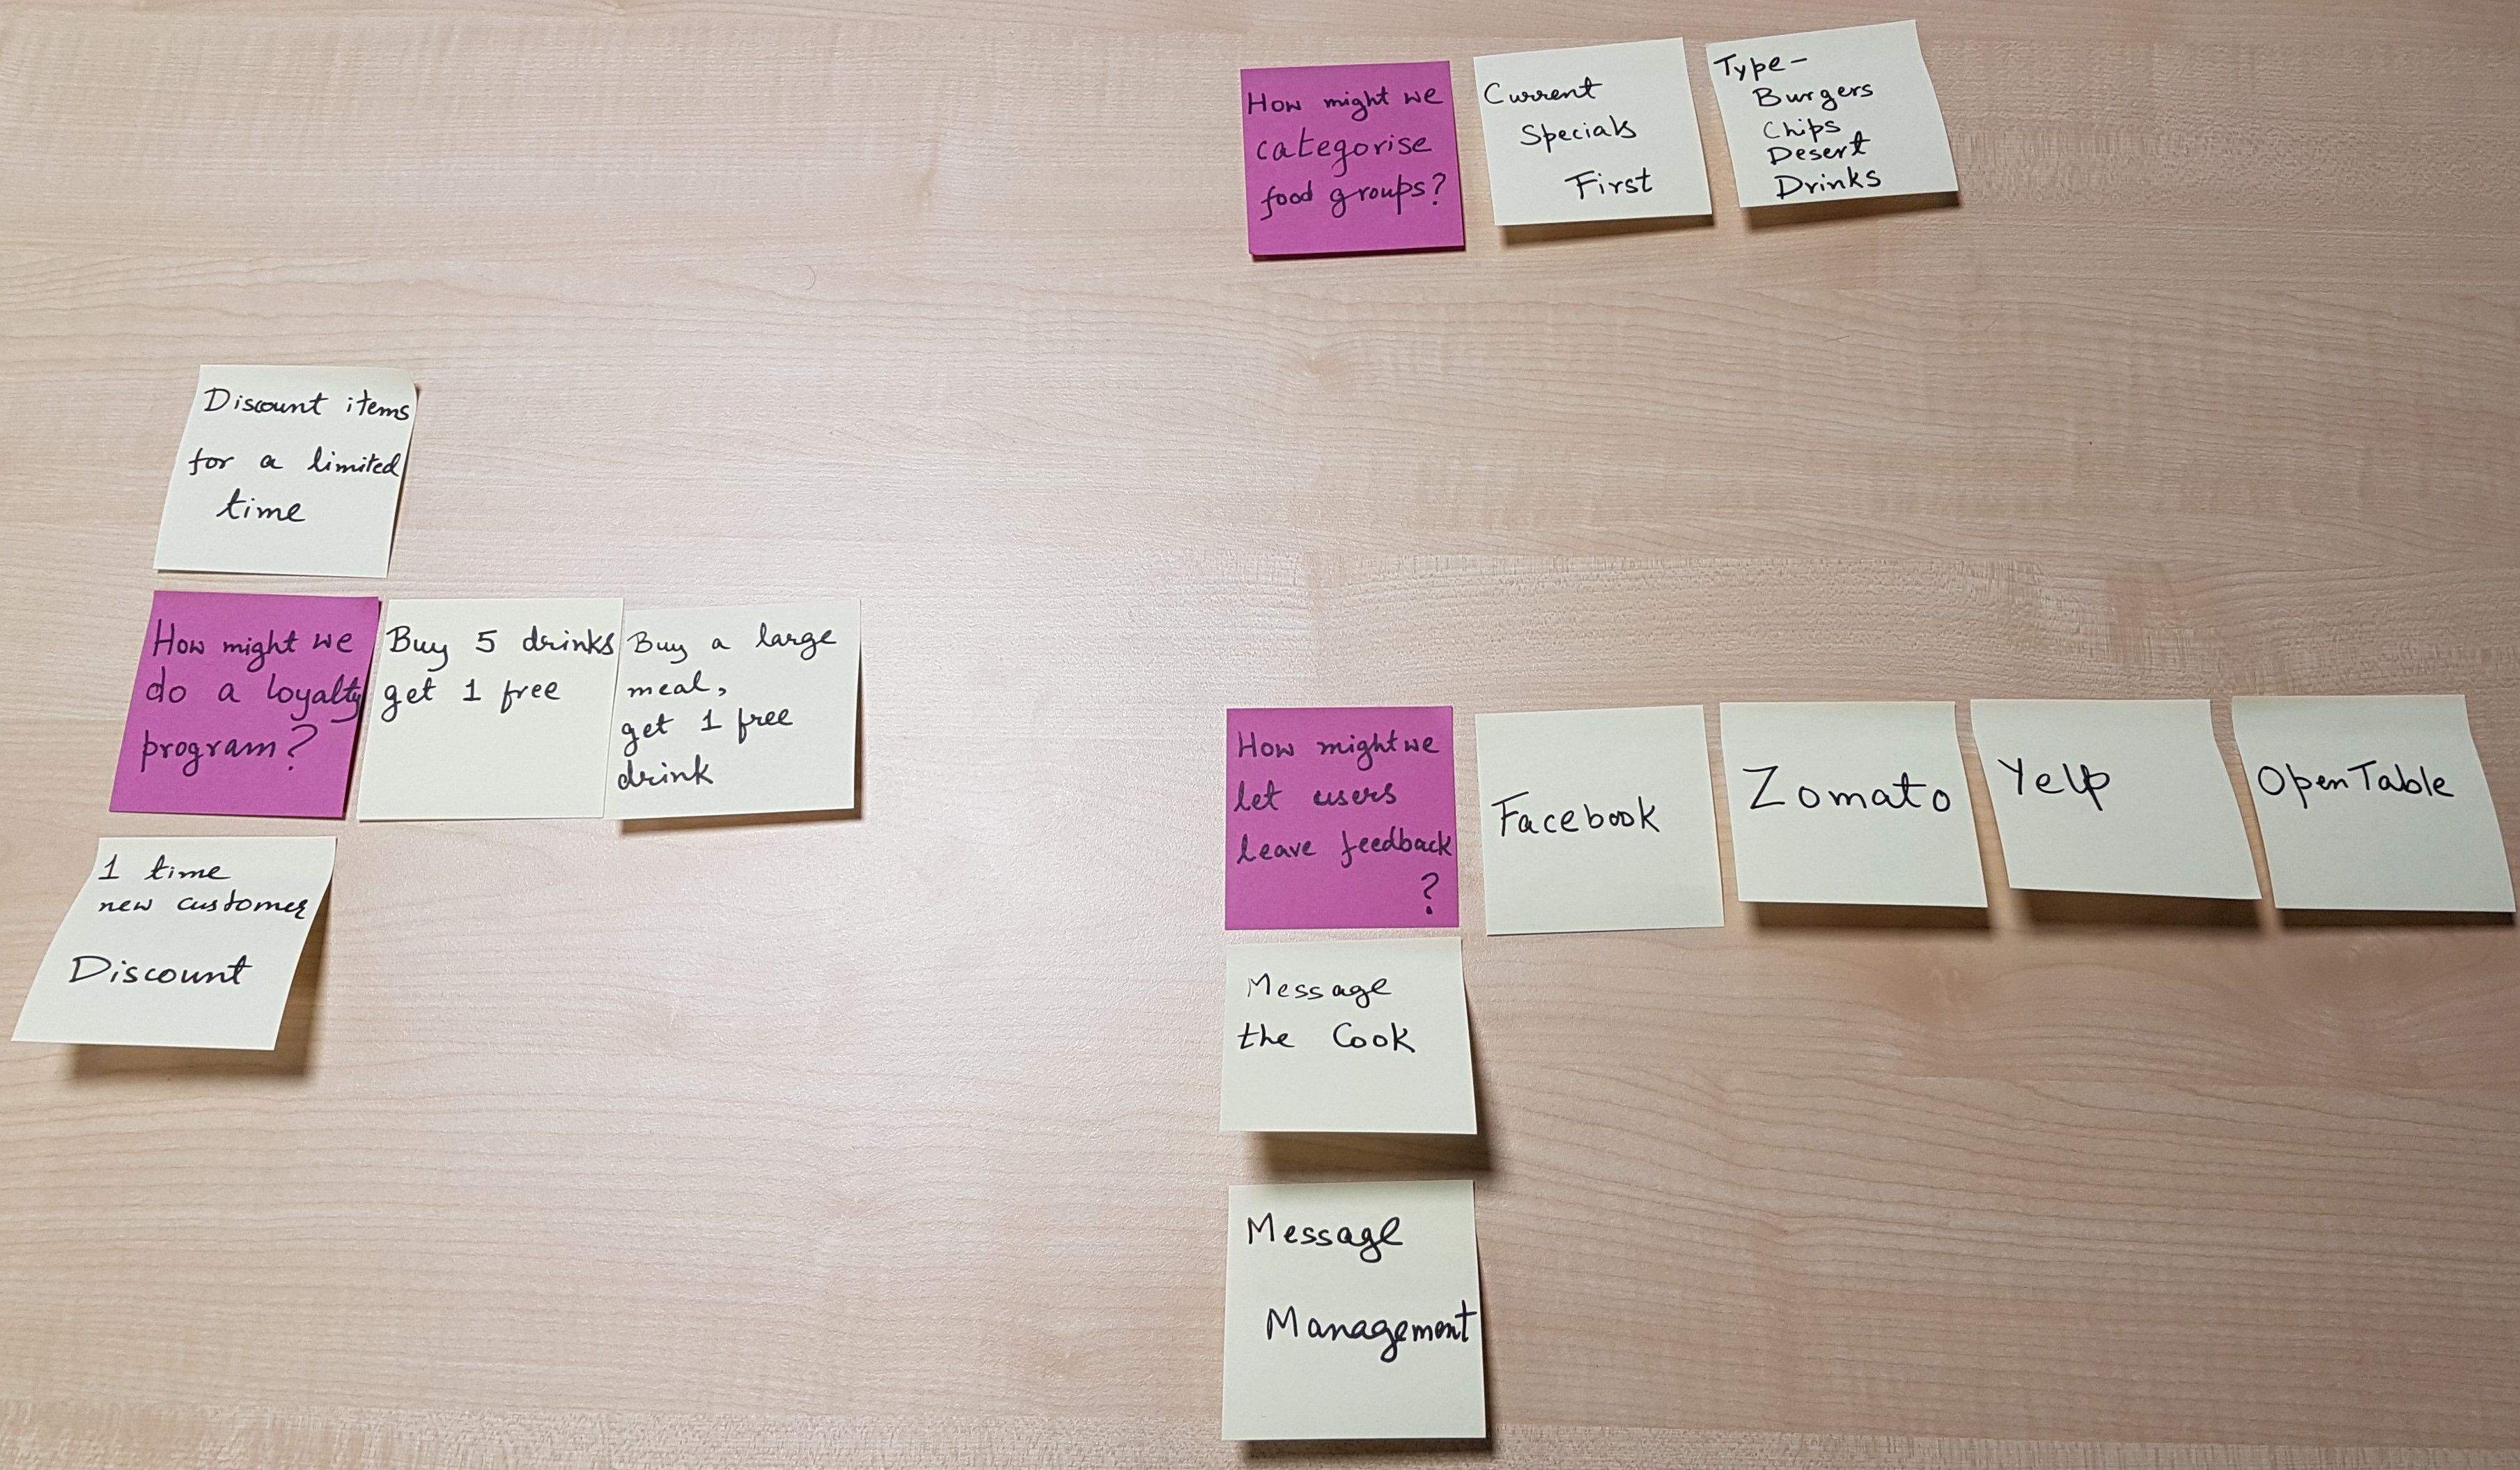 How might we
categorise
food groups?
Current
Specials
First
Type-
Burgers
Chips
Desert
Drinks
Discount items
for a limited
time
How might we
do a loyalty
program?
Buy 5 drinks
get 1 free
Buy a large
meal,
get 1 free
drink
1 time
new customer
Discount
How might we
let users
leave feedback
?
Facebook
Zomato
Yelp
OpenTable
Message
the Cook
Message
Management